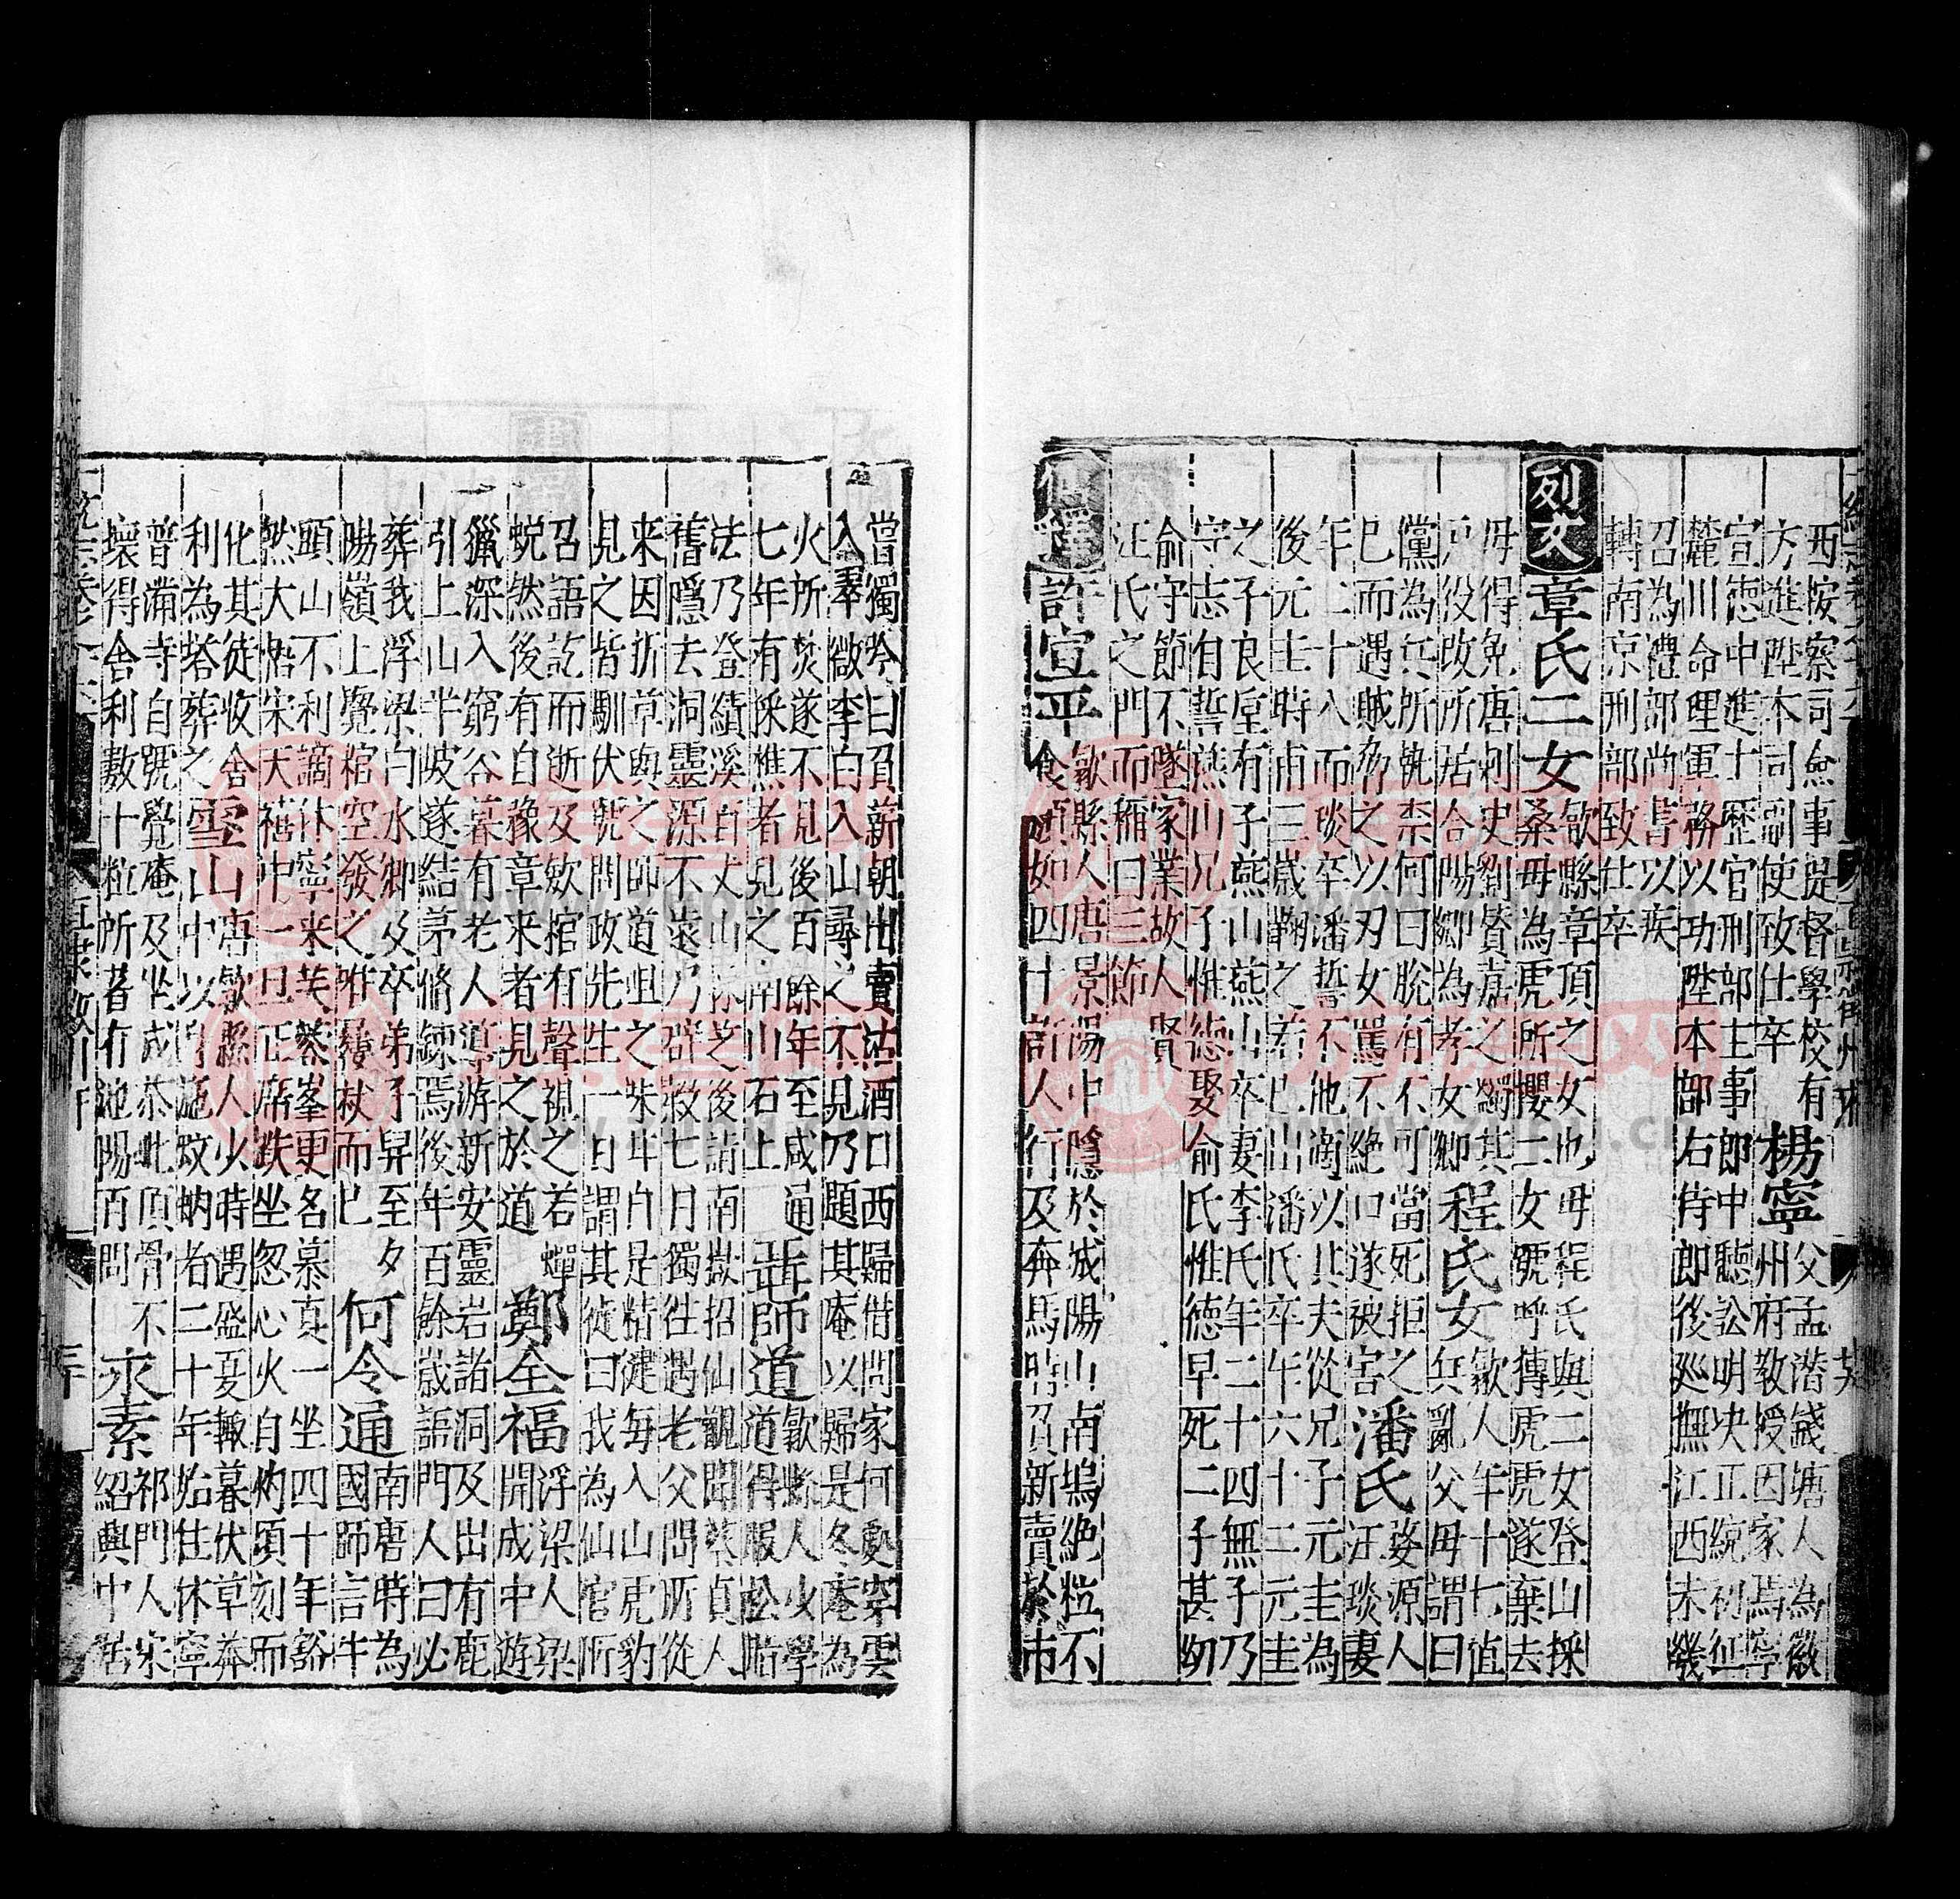 西按察司僉事提督學校有
方進陞本司副使致仕卒
楊寧
父孟潛錢塘人為徽
州府教授因家焉寧
宣德中進士歷官刑部主事郎中聽訟明决正統初征
麓川命理軍務以功陞本部右侍郎後廵撫江西未幾
召為禮部尚書以疾
轉南京刑部致仕卒
列女
章氏二女
歙縣章頂之女也母程氏與二女登山採
桑母為虎所攫二女號呼摶虎虎遂棄去
母得免唐刺史劉贊嘉之蠲其
戶役改所居合陽鄉為孝女鄉
程氏女
歙人年十七值
兵亂父母謂曰
儻為兵所執柰何曰脫有不可當死拒之
已而遇賊脅之以刃女罵不絶口遂被害
潘氏
婺源人
汪琰妻
年二十八而琰卒潘誓不他適以其夫從兄子元圭為
後元圭時甫三歲鞠之若己出潘氏卒年六十二元圭
之子良垕有子燕山燕山卒妻李氏年二十四無子乃
守志自誓燕山兄子惟德娶俞氏惟德早死二子甚幼
俞守節不墜家業故人賢
汪氏之門而稱曰三節
仙釋
許宣平
歙縣人唐景陽中隱於城陽山南塢絶粒不
食顏如四十許人行及奔馬時負薪賣於市
嘗獨吟曰負薪朝出賣沽酒日西歸借問家何處穿雲
入翠微李白入山尋之不見乃題其庵以歸是冬庵為
火所焚遂不見後百餘年至咸通
七年有採樵者見之南山石上
聶師道
歙縣人少學
道得服松脂
法乃登績溪百丈山採芝後請南嶽招仙觀聞蔡真人
舊隱去洞靈源不遠乃辟穀七日獨往遇老父問所從
来因折草與之師道咀之味甘自是精健每入山虎豹
見之皆馴伏號問政先生一日謂其徒曰我為仙官所
召語訖而逝及歛棺有聲視之若蟬
蛻然後有自豫章来者見之於道
鄭全福
浮梁人梁
開成中遊
獵深入窮谷暮有老人導游新安靈岩諸洞及出有鹿
引上山半坡遂結茅脩鍊焉後年百餘歲語門人曰必
葬我浮梁白水鄉及卒弟子舁至夕
陽嶺上覺棺空發之唯履杖而已
何令通
南唐時為
國師言牛
頭山不利謫休寧来芙蓉峯更名慕真一坐四十年豁
然大悟宋天禧中一旦正席趺坐忽心火自灼頃刻而
化其徒收舍
利為塔葬之
雪山
唐歙縣人火時遇盛夏輙暮伏草莽
山中以身施蚊蚋者二十年始住休寧
普滿寺自號覺庵及坐成恭此頂骨不
壞得舍利數十粒所著有池陽百問
永素
祁門人宋
紹興中居